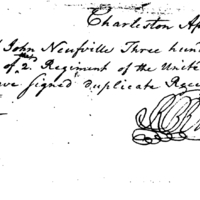 Charleston Ap
John Neufville Three hun
of 2d. Regiment of the Unite
ve signed duplicate Rece